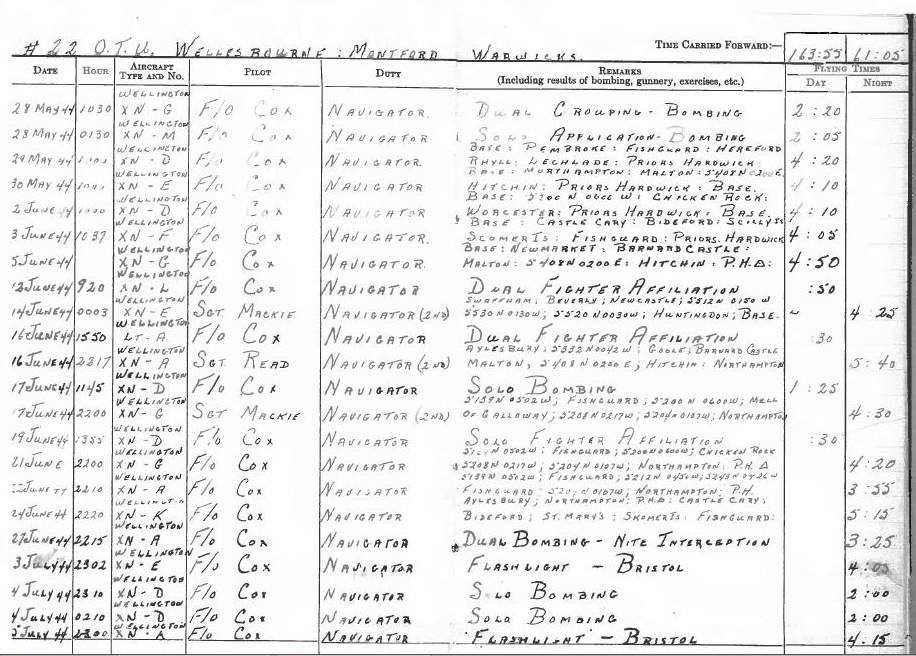 # 22 O.T.U. WELLESBOURNE : MONTFORD WARWICKS. TIME CARRIED FORWARD:— 163:55 61:05
DATE HOUR AIRCRAFT TYPE AND NO. PILOT DUTY REMARKS (Including results of bombing, gunnery, exercises, etc.) FLYING TIMES DAY NIGHT
WELLINGTON
28 MAY 44 1030 XN - G F/o COX NAVIGATOR. DUAL GROUPING - BOMBING 2:20
WELLINGTON
28 MAY 44 0130 XN - M F/o COX NAVIGATOR SOLO APPLICATION - BOMBING 2:05
WELLINGTON BASE : PEMBROKE : FISHGUARD : HEREFORD
29 MAY 44 XN - D F/o COX NAVIGATOR. RHYLL : LECHLADE : PRIORS HARDWICK : 4:20
WELLINGTON BASE : NORTHAMPTON : MALTON : 5408N 0200E.
30 MAY 44 XN - E F/o COX NAVIGATOR HITCHIN : PRIORS HARDWICK : BASE. 4:10
WELLINGTON BASE : 5200N 0600W : CHICKEN ROCK :
2 JUNE 44 XN - D F/o COX NAVIGATOR WORCESTER : PRIORS HARDWICK : BASE. 4:10
WELLINGTON BASE : CASTLE CARY : BIDEFORD : SCILLYS
3 JUNE 44 1037 XN - F F/o COX NAVIGATOR. SCOMERIS : FISHGUARD : PRIORS. HARDWICK 4:05
WELLINGTON BASE : NEWMARKET : BARNARD CASTLE :
5 JUNE 44 XN - G F/o COX NAVIGATOR. MALTON : 5408N 0200E : HITCHIN : P.H.Δ : 4:50
WELLINGTON
12 JUNE 44 920 XN - L F/o COX NAVIGATOR DUAL FIGHTER AFFILIATION :50
WELLINGTON SWAFFHAM ; BEVERLY ; NEWCASTLE ; 5512N 0150W
14 JUNE 44 0003 XN - E SGT. MACKIE NAVIGATOR (2ND) 5530N 0130W ; 5520N 0030W ; HUNTINGDON ; BASE. 4:25
WELLINGTON
16 JUNE 44 1550 LT - A F/o COX NAVIGATOR DUAL FIGHTER AFFILIATION :30
WELLINGTON AYLESBURY ; 5332N 0042W ; GOOLE ; BARNARD CASTLE
16 JUNE 44 2217 XN - A SGT. READ NAVIGATOR (2ND) MALTON ; 5408N 0200E ; HITCHIN : NORTHAMPTON 5:40
WELLINGTON
17 JUNE 44 1145 XN - D F/o COX NAVIGATOR SOLO BOMBING 1:25
WELLINGTON 5139N 0502W ; FISHGUARD ; 5200N 0600W ; MULL
17 JUNE 44 2200 XN - G SGT MACKIE NAVIGATOR (2ND) OF GALLOWAY ; 5208N 0217W ; 5204N 0107W ; NORTHAMPTON 4:30
WELLINGTON
19 JUNE 44 1355 XN - D F/o COX NAVIGATOR SOLO FIGHTER AFFILIATION :30
WELLINGTON 0502W : FISHGUARD ; 5200N 0600W ; CHICKEN ROCK
21 JUNE 2200 XN - G F/o COX NAVIGATOR 5208N 0217W ; 5204N 0107W ; NORTHAMPTON : P.H.Δ 4:20
WELLINGTON 5139N 0502W ; FISHGUARD ; 5212N 0436W ;
JUNE 2210 XN - A F/o COX NAVIGATOR FISHGUARD : 0107W ; NORTHAMPTON ; P.H. 3:55
WELLINGTON AYLESBURY ; NORTHAMPTON : P.H.Δ : CASTLE CARY :
24 JUNE 44 2220 XN - K F/o COX NAVIGATOR BIDEFORD ; ST. MARY'S ; SKOMERIS : FISHGUARD : 5:15
WELLINGTON
27 JUNE 44 2215 XN - A F/o COX NAVIGATOR DUAL BOMBING - NITE INTERCEPTION 3:25
WELLINGTON
3 JULY 44 2302 XN - E F/o COX NAVIGATOR FLASHLIGHT - BRISTOL 4:05
WELLINGTON
4 JULY 44 2310 XN - D F/o COX NAVIGATOR SOLO BOMBING 2:00
WELLINGTON
4 JULY 44 0210 XN - D F/o COX NAVIGATOR SOLO BOMBING 2:00
WELLINGTON
5 JULY 44 2300 XN - A F/o COX NAVIGATOR FLASHLIGHT - BRISTOL 4.15